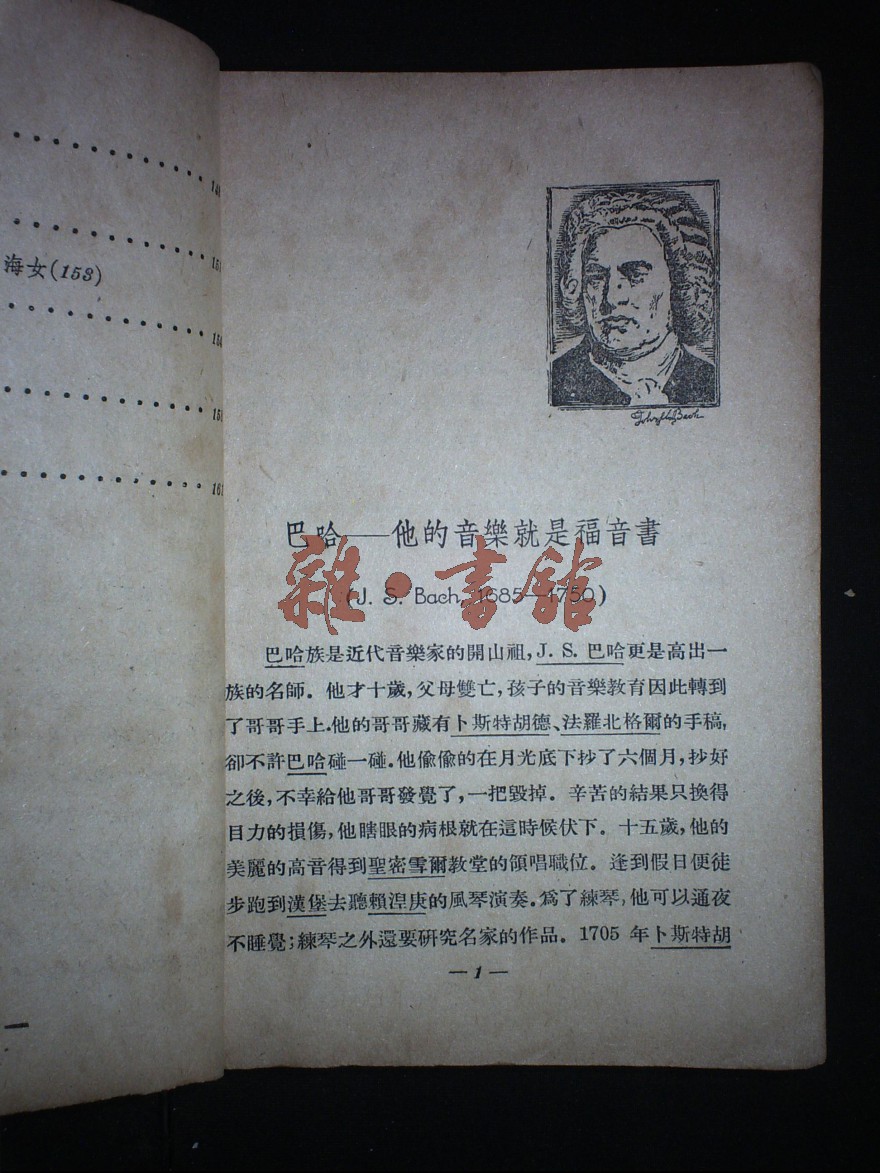 海女(153)
154
161
巴哈——他的音樂就是福音書
(J. S. Bach, 1685—1750)
雜·書館
巴哈族是近代音樂家的開山祖,J. S. 巴哈更是高出一
族的名師。他才十歲,父母雙亡,孩子的音樂教育因此轉到
了哥哥手上.他的哥哥藏有卜斯特胡德、法羅北格爾的手稿,
卻不許巴哈碰一碰.他偷偷的在月光底下抄了六個月,抄好
之後,不幸給他哥哥發覺了,一把毀掉。辛苦的結果只換得
目力的損傷,他瞎眼的病根就在這時候伏下。十五歲,他的
美麗的高音得到聖密雪爾教堂的領唱職位。逢到假日便徒
步跑到漢堡去聽賴湼庚的風琴演奏.爲了練琴,他可以通夜
不睡覺;練琴之外還要研究名家的作品。1705 年卜斯特胡
—1—